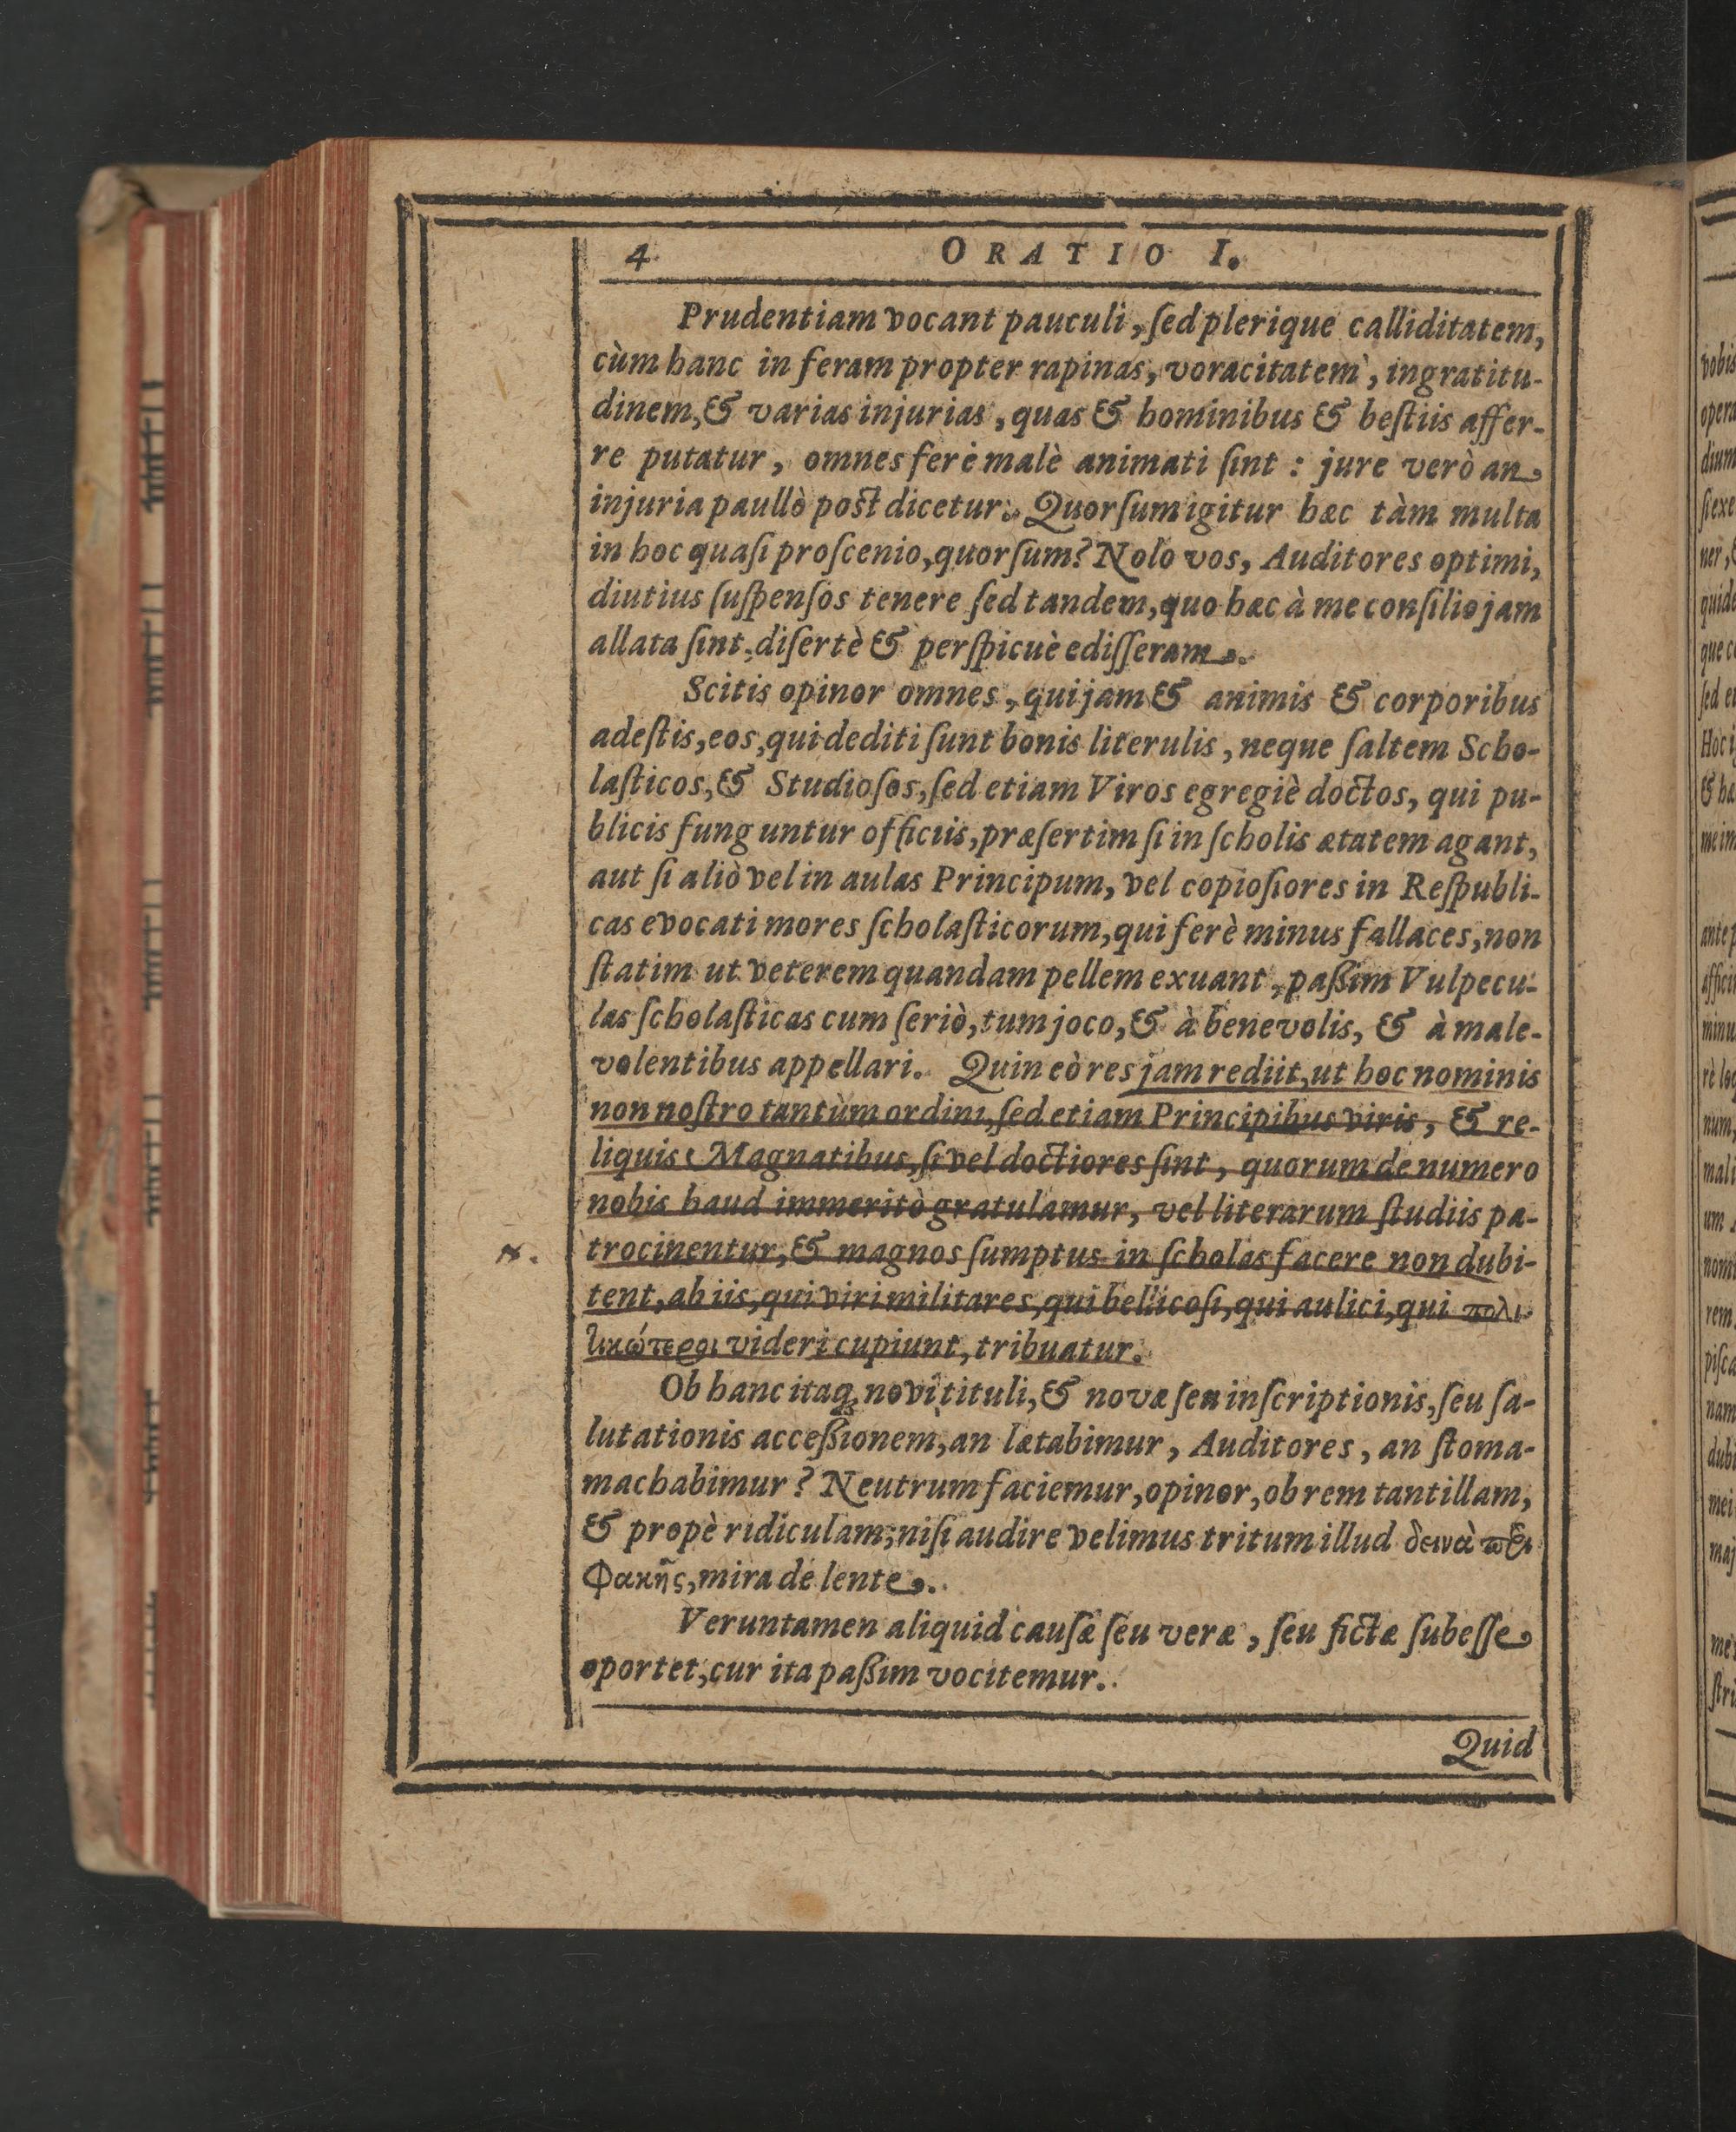 4 ORATIO I.
Prudentiam vocant pauculi, ſed plerique calliditatem,
cùm hanc in feram propter rapinas, voracitatem, ingratitu-
dinem, & varias injurias, quas & hominibus & beſtiis affer-
re putatur, omnes ferè malè animati ſint : jure verò an
injuria paullò poſt dicetur. Quorſum igitur hæc tàm multa
in hoc quaſi proſcenio, quorſum? Nolo vos, Auditores optimi,
diutius ſuſpenſos tenere ſed tandem, quo hæc à me conſilio jam
allata ſint, diſertè & perſpicuè ediſſeram.
Scitis opinor omnes, qui jam & animis & corporibus
adeſtis, eos, qui dediti ſunt bonis literulis, neque ſaltem Scho-
laſticos, & Studioſos, ſed etiam Viros egregiè doctos, qui pu-
blicis funguntur officiis, præſertim ſi in ſcholis ætatem agant,
aut ſi aliò vel in aulas Principum, vel copioſiores in Reſpubli-
cas evocati mores ſcholaſticorum, qui ferè minus fallaces, non
ſtatim ut veterem quandam pellem exuant, paßim Vulpecu-
las ſcholaſticas cum ſeriò, tum joco, & à benevolis, & à male-
volentibus appellari. Quin eò res jam rediit, ut hoc nominis
non noſtro tantùm ordini, ſed etiam Principibus viris, & re-
liquis Magnatibus, ſi vel doctiores ſint, quorum de numero
nobis haud immeritò gratulamur, vel literarum ſtudiis pa-
trocinentur, & magnos ſumptus in ſcholas facere non dubi-
tent, ab iis, qui viri militares, qui bellicoſi, qui aulici, qui πολι-
τικώτεροι videri cupiunt, tribuatur.
Ob hanc itaq; novi tituli, & novæ ſeu inſcriptionis, ſeu ſa-
lutationis acceßionem, an lætabimur, Auditores, an ſtoma-
machabimur? Neutrum faciemur, opinor, ob rem tantillam,
& propè ridiculam; niſi audire velimus tritum illud δεινὰ περὶ
φακῆς, mira de lente.
Veruntamen aliquid cauſæ ſeu veræ, ſeu fictæ ſubeſſe
oportet, cur ita paßim vocitemur.
Quid